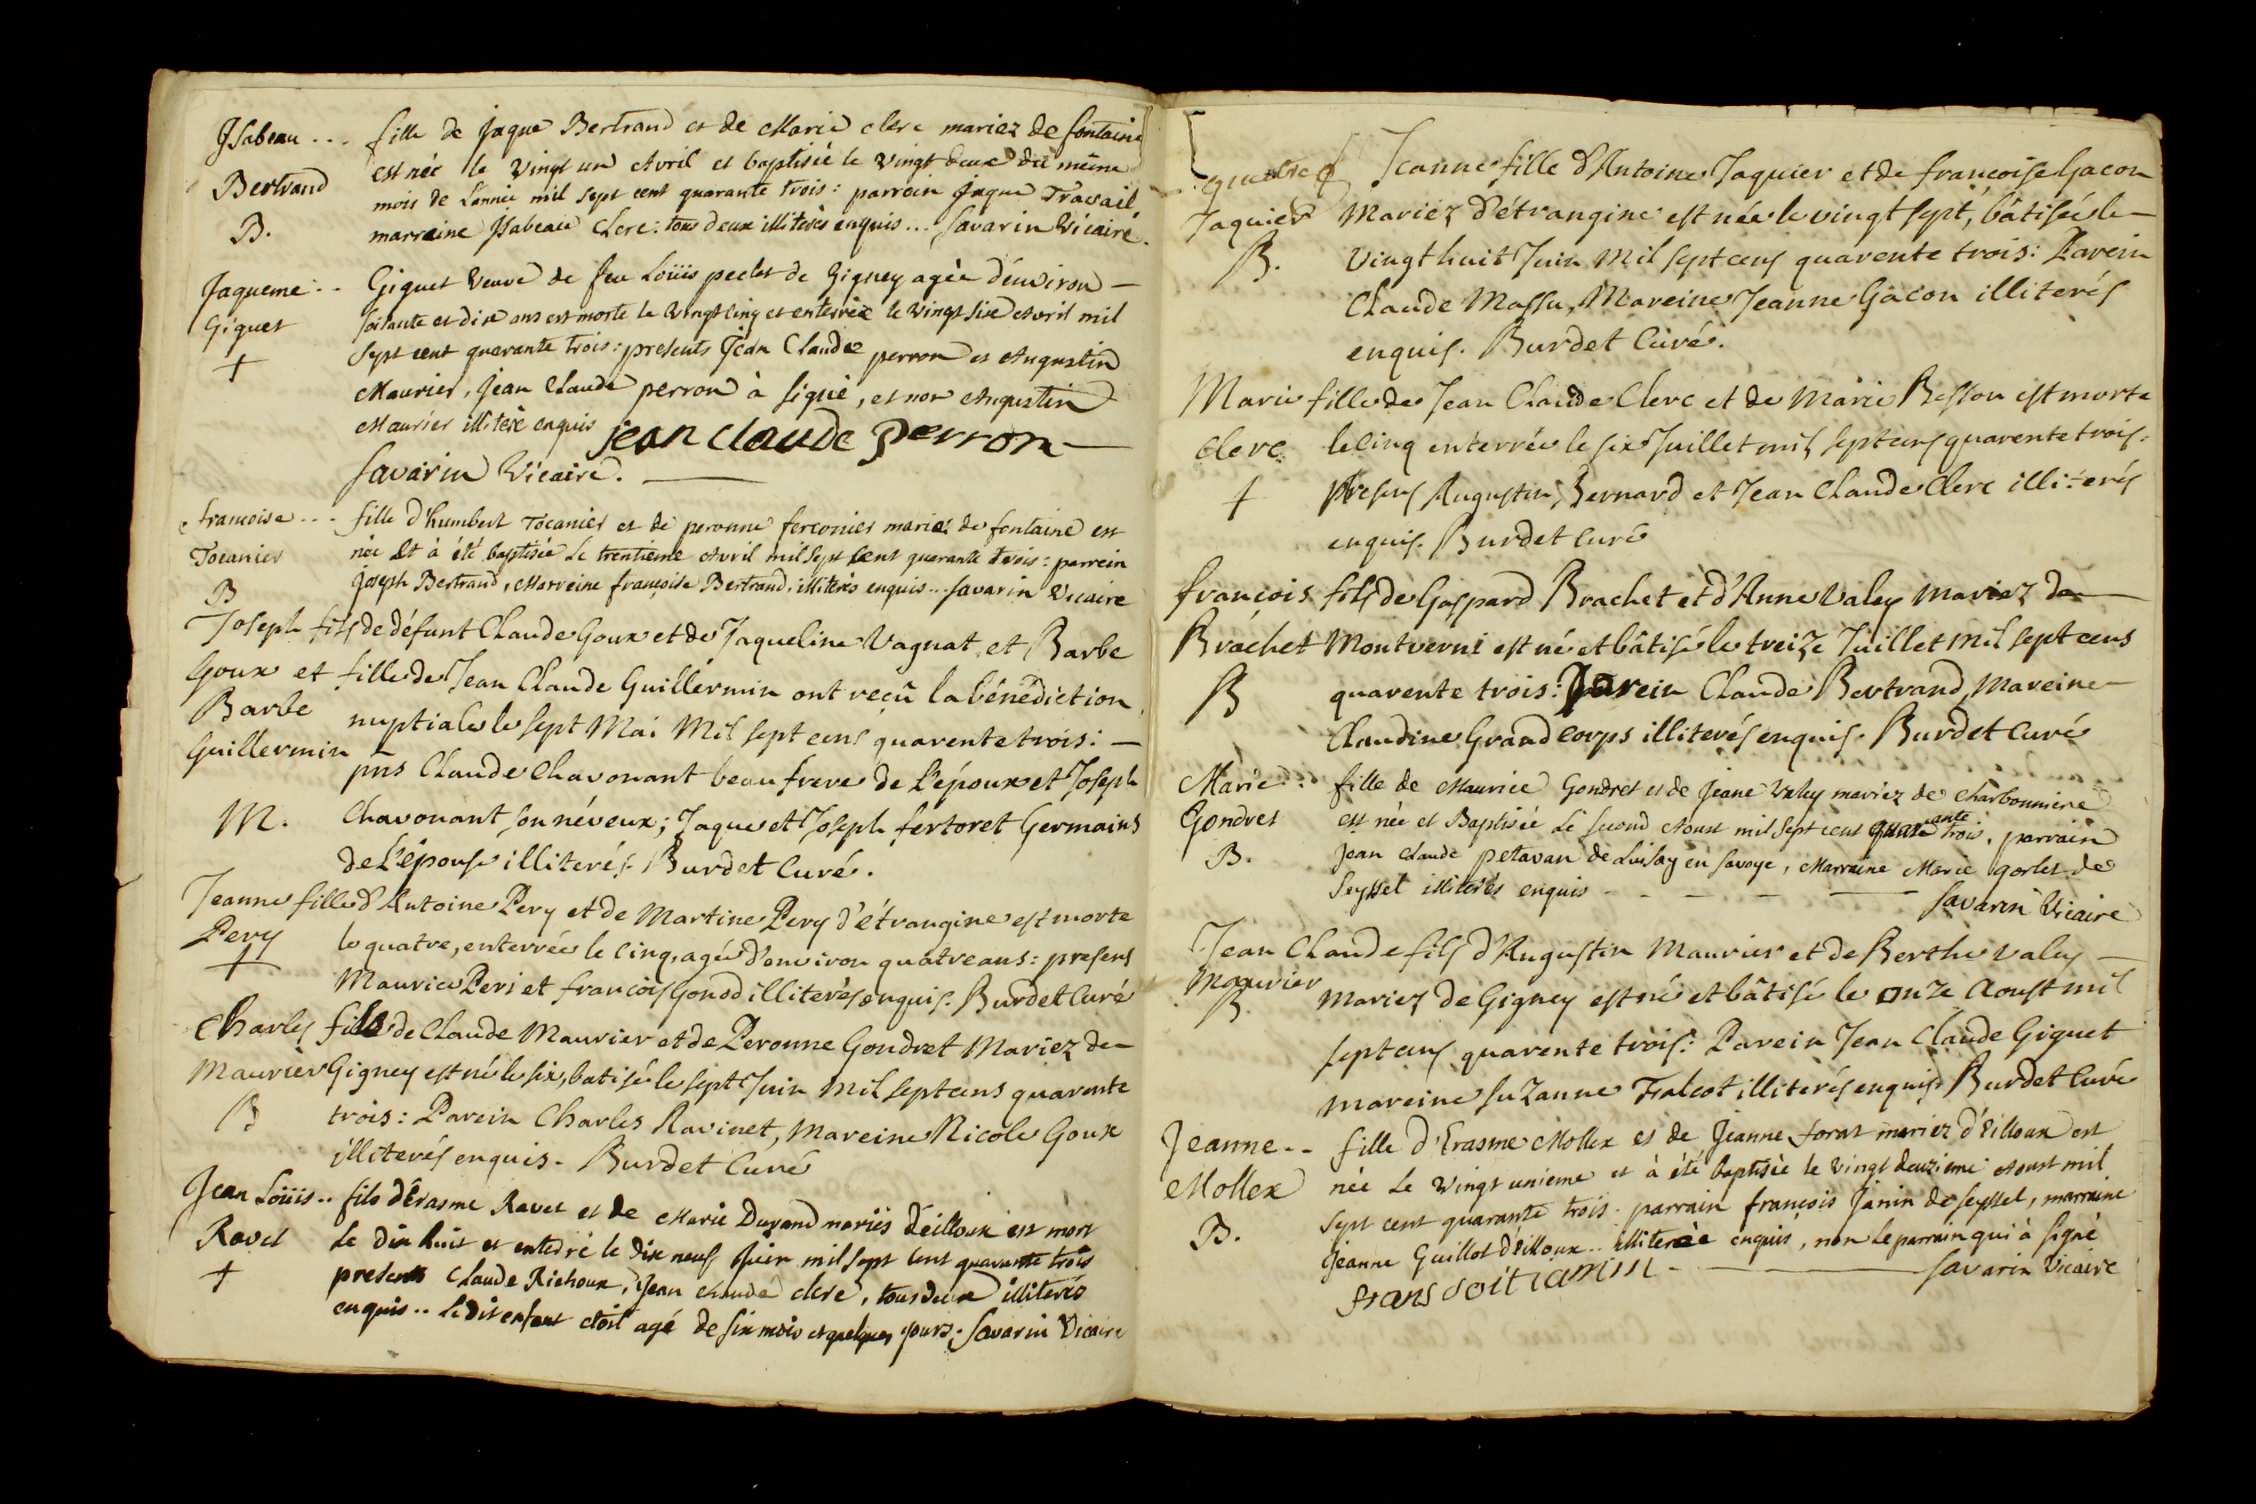 Jsabeau ... fille de Jaque Bertrand et de Marie clerc mariez de fontaine
Bertrand est née le Vingt un Avril et baptisée le Vingt deux du même
mois de L'année mil sept cent quarante trois : parrain Jaque Travail
B. marraine Jsabeau Clerc : tous deux illiterés enquis ... Savarin Vicaire.
Jaqueme .. Giguet veuve de feu Loüis peclet de Gigney agée d'environ —
Giguet soixante et dix ans est morte le Vingt cinq et enterrée le Vingt six Avril mil
+ sept cent quarante trois : presents Jean Claude perron et Augustin
Maurier, Jean Claude perron à signé, et non Augustin
Maurier illiteré enquis jean claude perron —
Savarin Vicaire. —
francoise ... fille d'humbert Tocanier et de peronne ferconier mariez de fontaine est
Tocanier née et à été baptisée Le trentieme Avril mil sept cent quarante trois : parrein
B Joseph Bertrand, Marreine francoise Bertrand, illiterés enquis ... Savarin Vicaire
Joseph fils de défunt Claude Goux et de Jaqueline Vagnat, et Barbe
Goux et fille de Jean Claude Guillermin ont reçû la bénédiction
Barbe nuptiale le sept Mai Mil sept cens quarente trois : —
Guillermin pns Claude Chavonant beau frere de L'époux et Joseph
M. Chavonant son néveux ; Jaque et Joseph fertoret Germains
de L'épouse illiterés. Burdet Curé.
Jeanne fille d'Antoine Pery et de Martine Pery d'étrangine est morte
Pery le quatre, enterrée le cinq, agée d'environ quatre ans : presens
+ Maurice Peri et francois Gonod illiterés enquis. Burdet Curé
Charles fils de Claude Maurier et de Peronne Gondret Mariez de
Maurier Gigney est né le six, batisé le sept Juin Mil sept cens quarente
B trois : Parein Charles Ravinet, Mareine Nicole Goux
illiterés enquis. Burdet Curé
Jean Loüis .. fils d'Erasme Ravet et de Marie Durand mariés d'eilloux est mort
Ravet Le dix huit et enterré le dix neuf Juin mil sept cent quarante trois
+ presents Claude Richoux, Jean Claude clerc, tous deux illiterés
enquis .. Ledit enfant etoit agé de six mois et quelques jours ; Savarin Vicaire
Jeanne fille d'Antoine Jaquier et de francoise Gacon
Jaquier Mariez d'étrangine est née le vingt sept, bâtisée le —
B. Vingt huit Juin Mil sept cens quarente trois : Parein
Claude Massu, Mareine Jeanne Gacon illiterés
enquis. Burdet Curé.
Marie fille de Jean Claude Clerc et de Marie Besson est morte
Clerc le cinq enterrée le six Juillet mil sept cens quarente trois :
+ presens Augustin Bernard et Jean Claude Clerc illiterés
enquis. Burdet Curé
francois fils de Gaspard Brachet et d'Anne Valey mariez de —
Brachet Montverni est né et bâtisé le treize Juillet Mil sept cens
B quarente trois : Parein Claude Bertrand, Mareine —
Claudine Grand corps illiterés enquis. Burdet Curé
Marie .. fille de Maurice Gondret et de Jeane Valey mariez de Charbonniere
Gondret est née et Baptisée Le second Aoust mil sept cent quarante trois, parrain
B. Jean Claude petavan de en savoye, Marraine Marie gorlet de
Seyssel illiterés enquis - - - — Savarin Vicaire
Jean Claude fils d'Augustin Maurier et de Berthe valey —
Maurier Mariez de Gigney est né et bâtisé le onze Aoust mil
B. sept cens quarente trois : Parein Jean Claude Giguet
mareine suzanne Falcot illiterés enquis. Burdet Curé
Jeanne .. fille d'Erasme Mollex et de Jeanne forat mariez d'eilloux est
Mollex née Le vingt unieme et à été baptisée le vingt deuzieme Aoust mil
sept cent quarante trois . parrain françois Janin de seyssel, marraine
B. Jeanne Guillot d'eilloux .. illiterée enquis, non Le parrain qui à signé
Savarin Vicaire